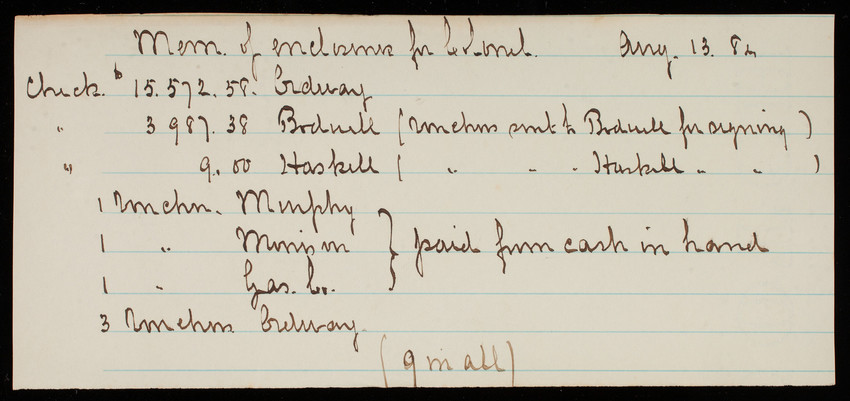 Mem. of enclosures for Colonel. Aug. 13. 84
Check. 15.572.58. Ordway
" 3987.38 Bodwell (vouchers sent to Bodwell for signing)
" 9.00 Haskell ( " " " Haskell " " )
1 voucher. Murphy
1 " Morrison } paid from cash in hand
1 " Gas. Co.
3 vouchers Ordway.
(9 in all)